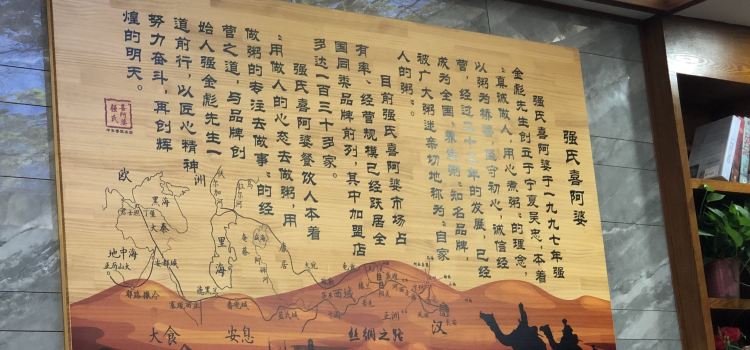 强氏喜阿婆
强氏喜阿婆于一九九七年强
金彪先生创立于宁夏吴忠,本着
“真诚做人,用心煮粥”的理念,
以粥为桥梁,坚守初心,诚信经
营,经过二十三年的发展,已经
成为全国“养生粥”知名品牌,
被广大粥迷亲切地称为“自家
人的粥”。
目前强氏喜阿婆市场占
有率、经营规模已经跃居全
国同类品牌前列,其中加盟店
多达一百三十多家。
强氏喜阿婆餐饮人本着
“用做人的心态去做粥,用
做粥的专注去做事”的经
营之道,与品牌创
始人强金彪先生一
道前行,以匠心精神
努力奋斗,再创辉
煌的明天。
强氏
喜阿婆
欧
洲
黑海
大秦
地中海
里海
康居
奄蔡
安都城
耶路撒冷
西域
亚洲
汉
大食
安息
丝绸之路